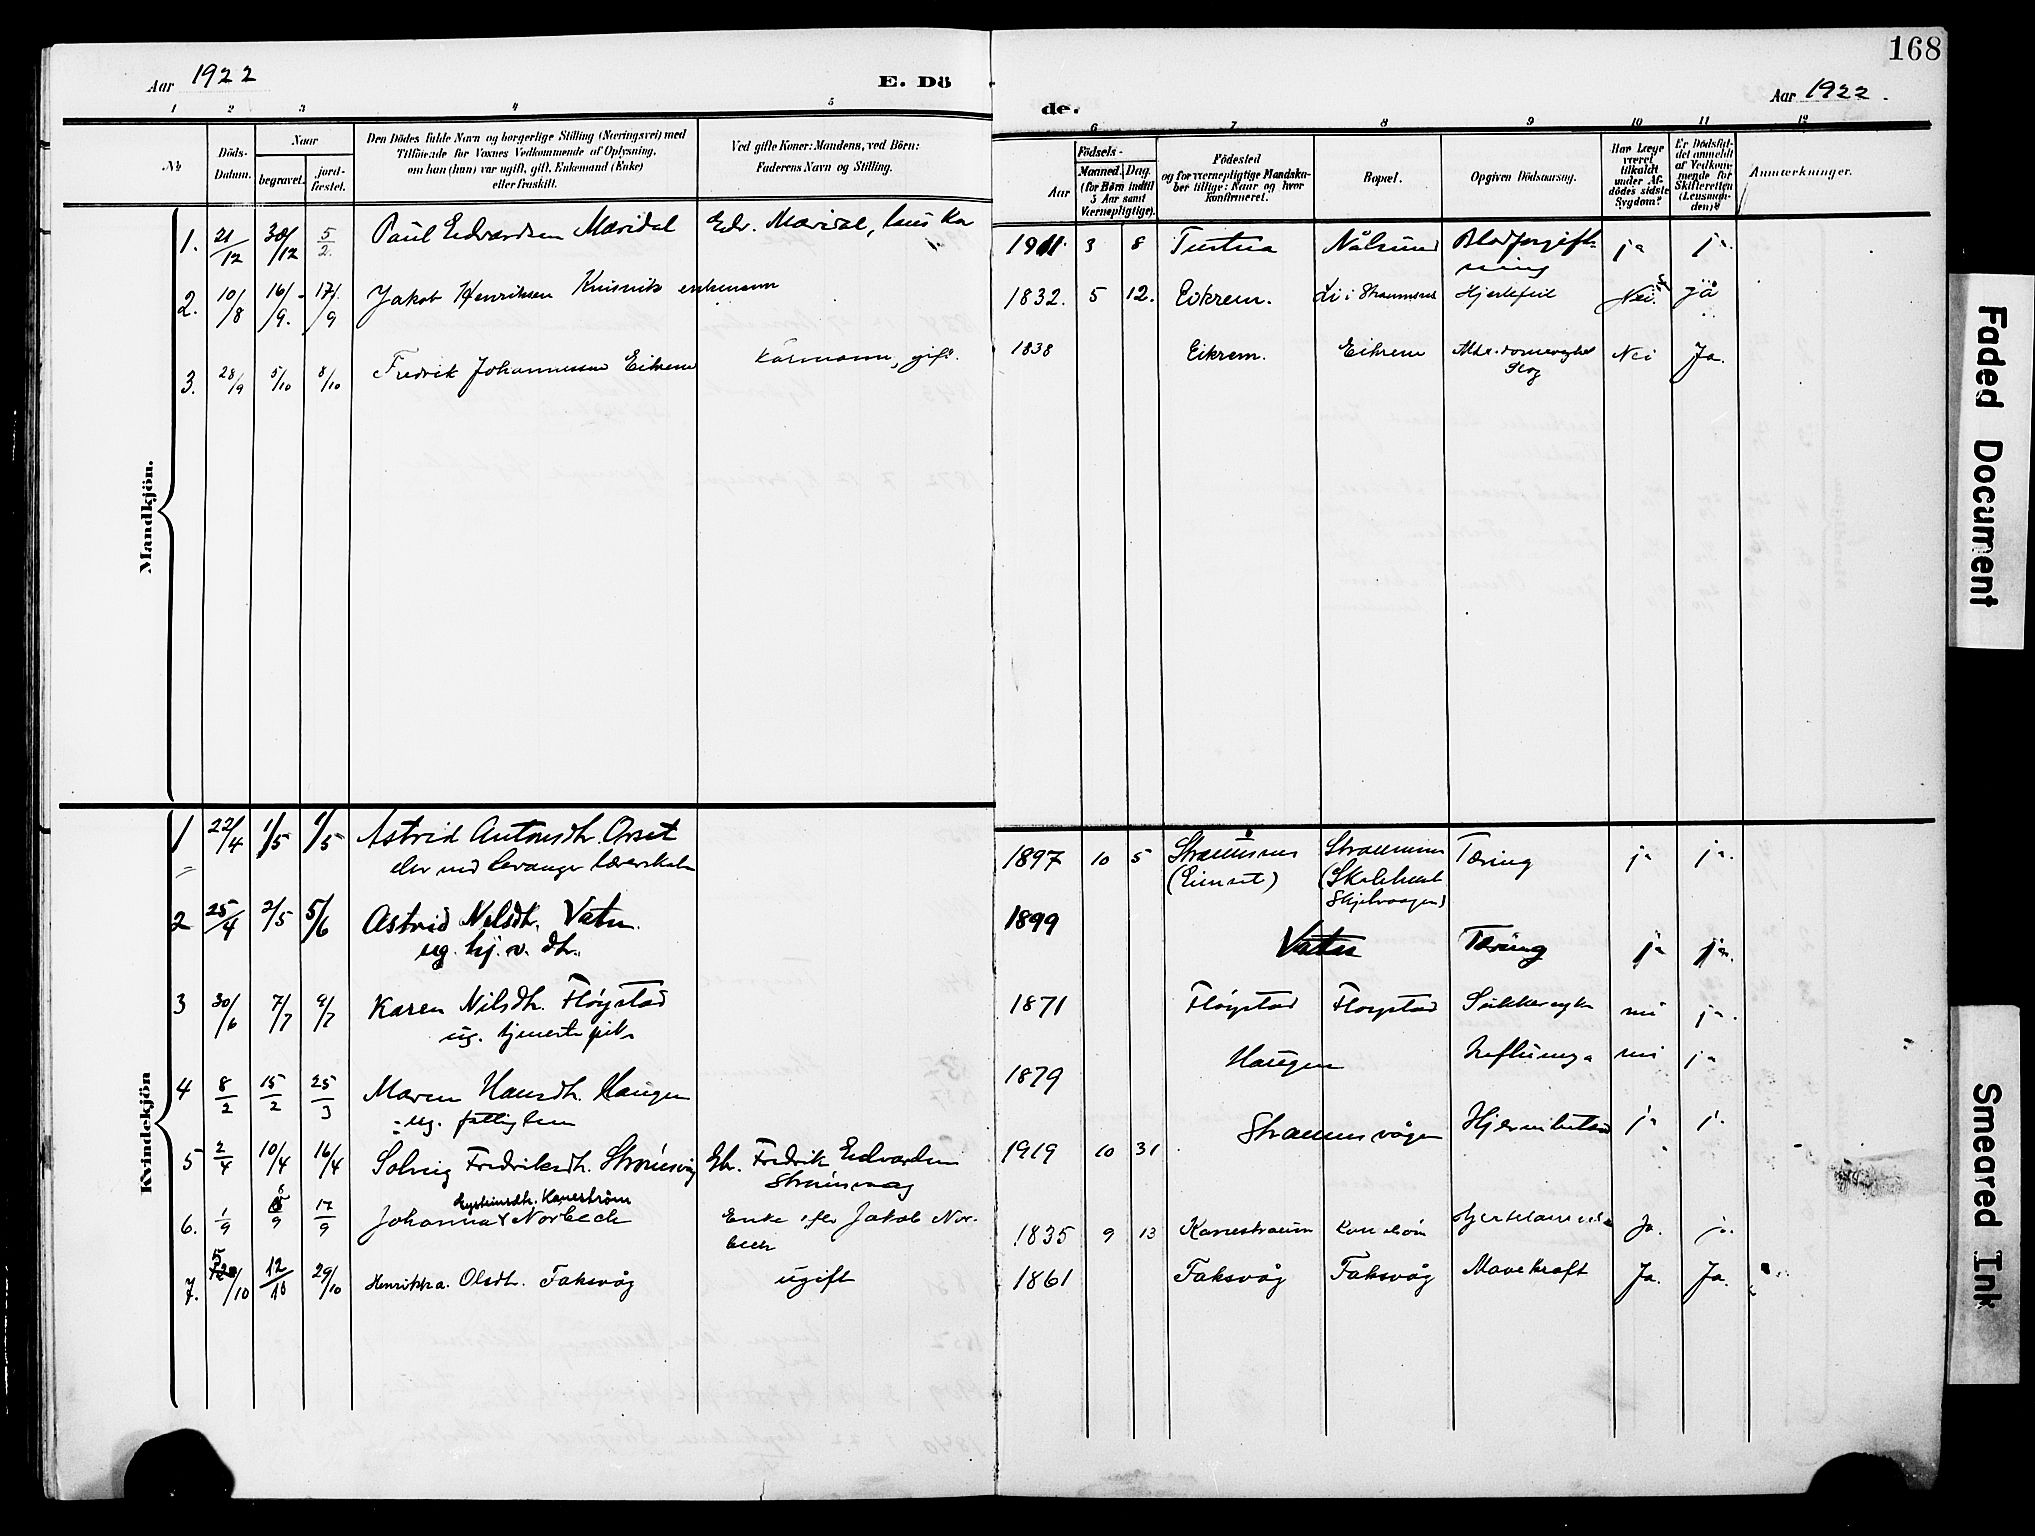 168
Aar 1922
E. Dö
de.
Aar 1922.
1 2 3 4 5
6 7 8 9 10 11 12
No
Döds-
Datum.
Naar
begravet.
jord-
fæstet.
Den Dödes fulde Navn og borgerlige Stilling (Næringsvei) med
Tilföiende for Voxnes Vedkommende af Oplysning,
om han (hun) var ugift, gift, Enkemand (Enke)
eller fraskilt.
Ved gifte Koner: Mandens, ved Börn:
Faderens Navn og Stilling.
Födsels-
Aar
Maaned.
Dag.
(for Börn indtil
5 Aar samt
Værnepligtige).
Födested
og for værnepligtige Mandska-
ber tillige: Naar og hvor
konfirmeret.
Bopæl.
Opgiven Dödsaarsag.
Har Læge
været
tilkaldt
under Af-
dödes sidste
Sygdom?
Er Dödsfal-
det anmeldt
af Vedkom-
mende for
Skifteretten
(Lensman-
den)?
Anmerkninger.
Mandkjön.
1. 21/12 30/12 5/2. Paul Edvardsen Mæridal Edv. Mæridal, 1911. 3 8 Tustna Nålsund Blodforgift-
ning ja ja.
2. 10/8 16/9. 17/9 Jakob Henriksen enkemann 1832. 5 12. Eikrem. Li i Straumsnes Hjertefeil Nei. ja
3. 28/9 5/10 8/10 Fredrik Johannessen Eikrem Kårmann, gift. 1838 Eikrem. Eikrem Nei Ja.
Kvindekjön
1 22/4 1/5 1/5 Astrid Antonsdtr. Orset
elev ved Levanger lærerskole 1897 10 5 Straumsnes
(Eimset) Straumsnes Tæring ja ja.
2 25/4 2/5 5/6 Astrid Nilsdtr. Vatn.
ug. hj. v. dtr. 1899 Vatn Tæring ja ja.
3 30/6 7/7 9/7 Karen Nilsdtr. Fløystad
ug. tjenestepike 1871 Fløystad Fløystad Sukkersyke nei ja.
4 8/2 15/2 25/3 Maren Hansdtr. Haugen
ug. fattiglem 1879 Haugen Influensa nei ja
5 2/4 10/4 16/4 Solveig Fredriksdtr. Straumsvåg Gbr. Fredrik Edvardsen
Straumsvaag 1919 10 31 Straumsvågen ja j.
6. 1/9 6/9 17/9 Johanna Norbech
Kanestrøm
Enke efter Jakob Nor-
bech 1835 9 13 Kanestraum Ja. j.
7. 5/10 12/10 29/10 Henrikka Olsdtr. Taksvåg ugift 1861 Taksvåg Taksvåg Mavekræft Ja. Ja.
Faded Document
Smeared Ink